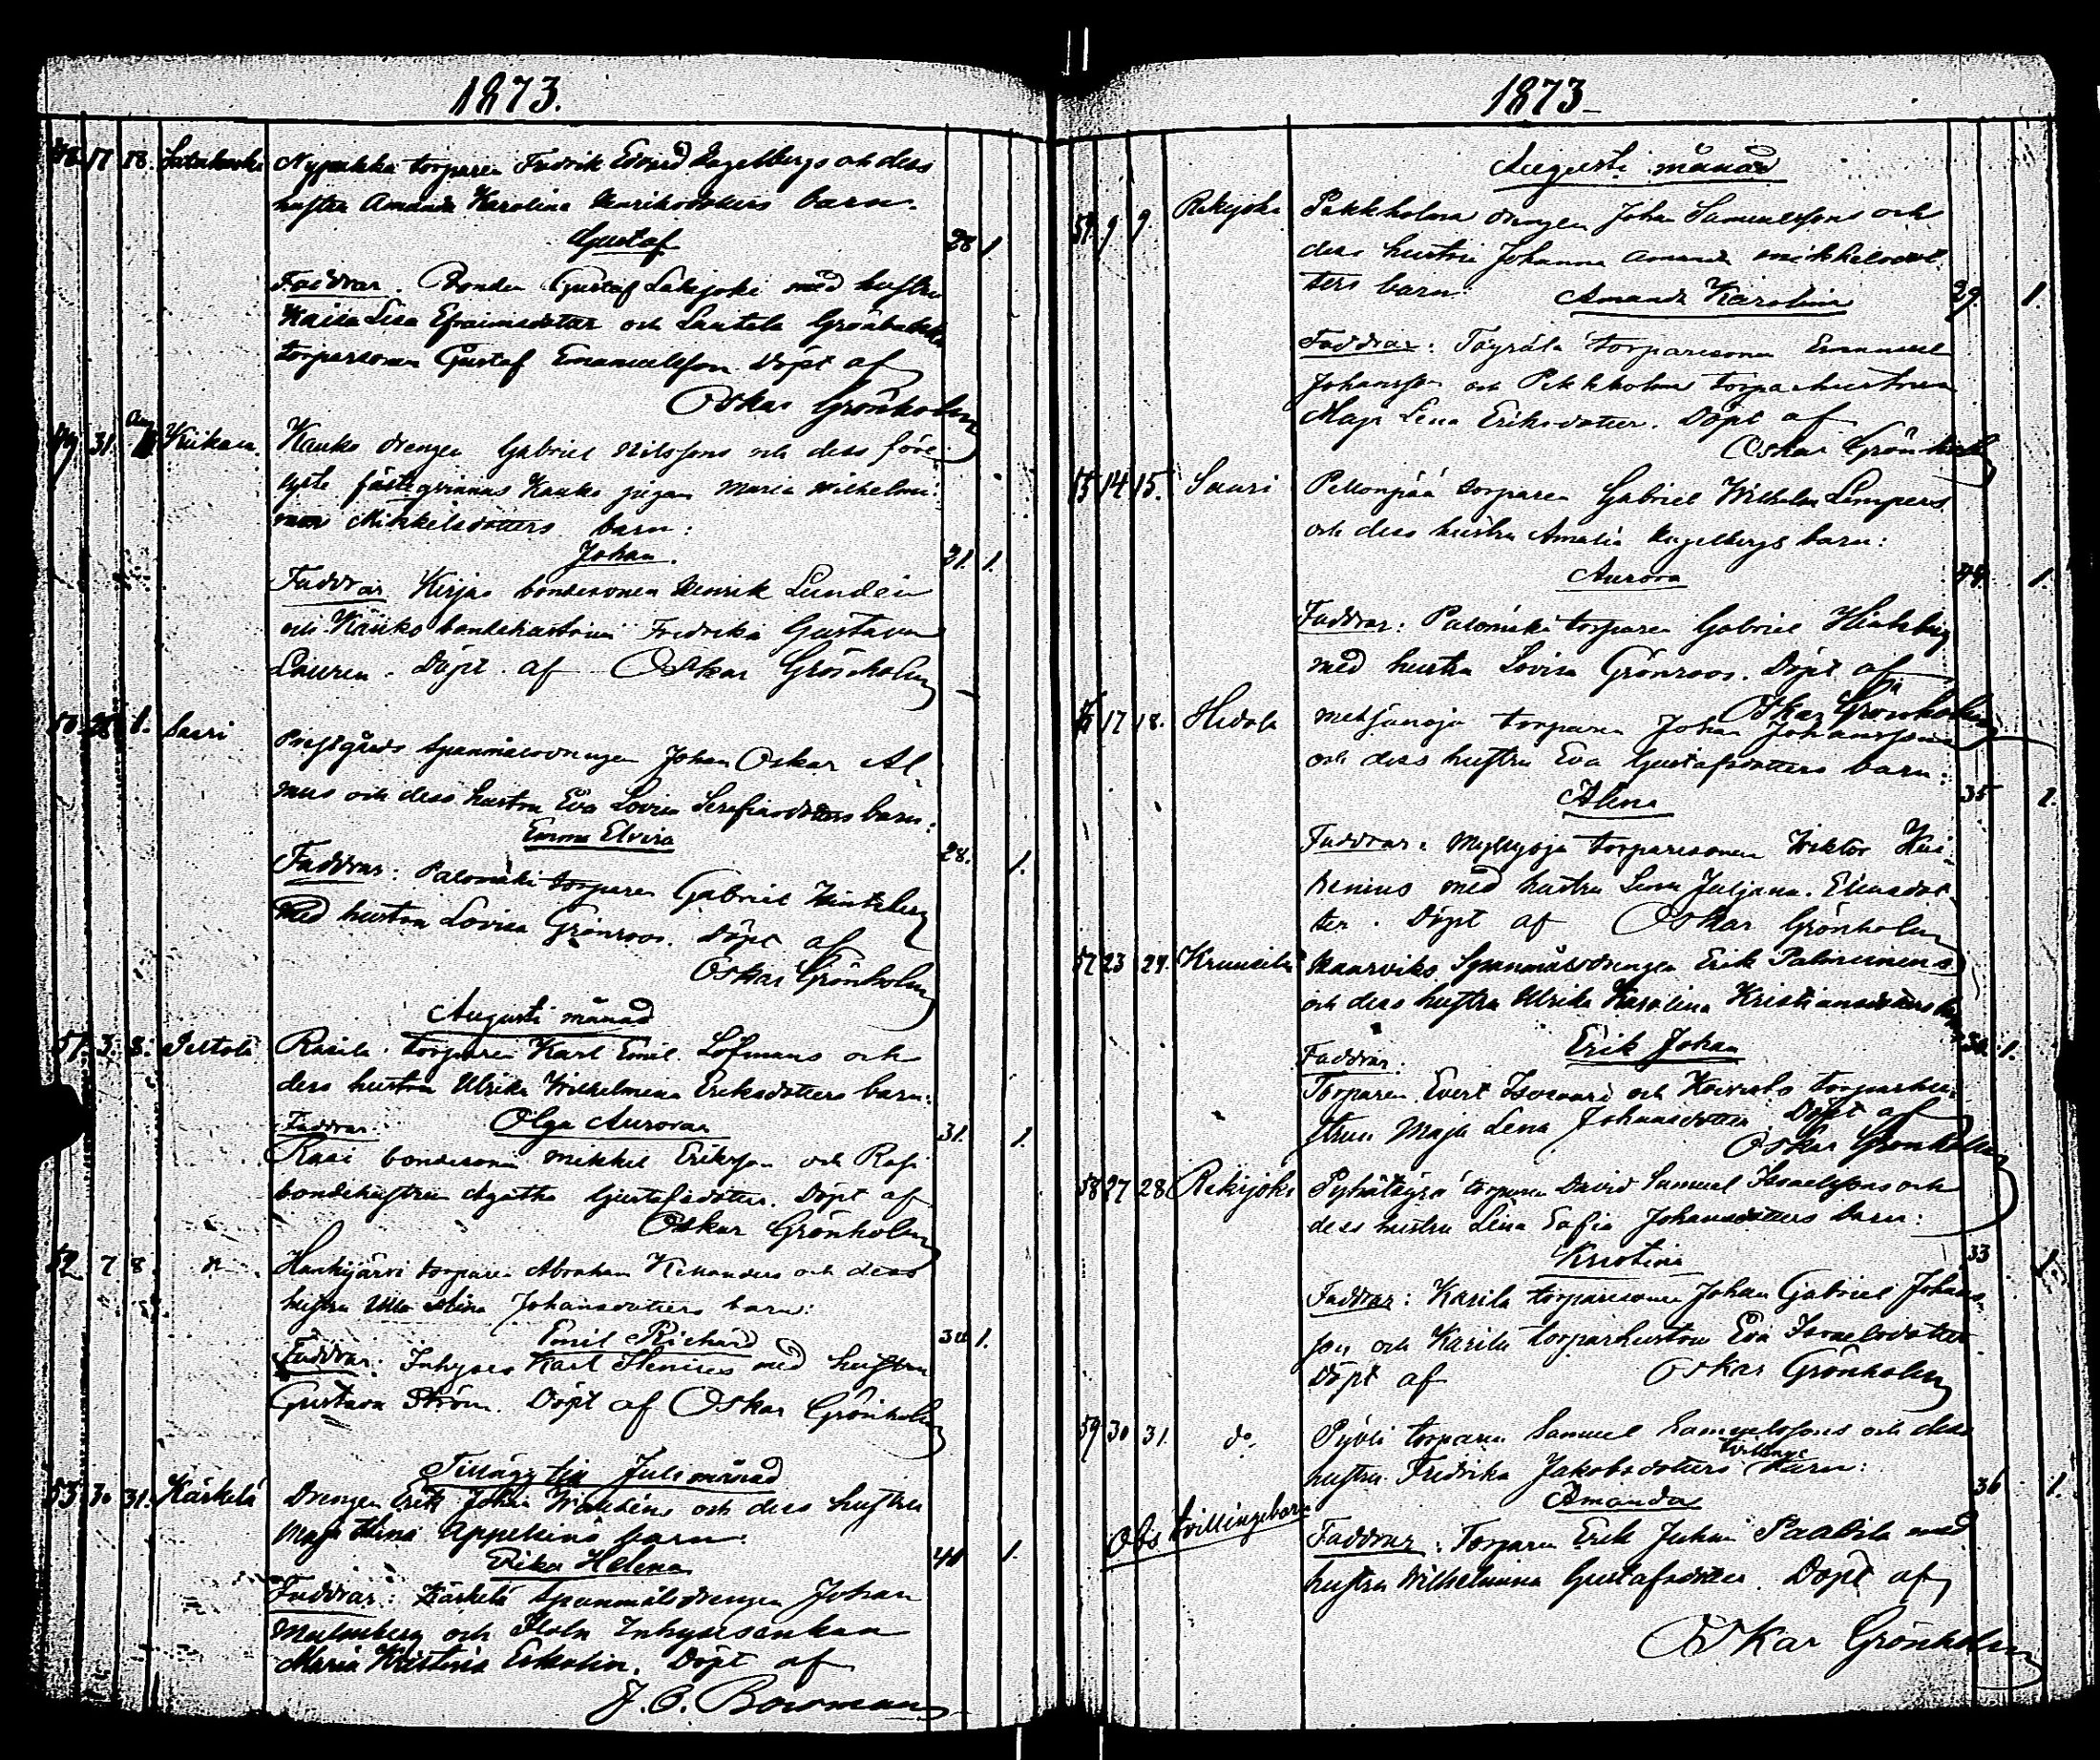 1873.
17 18. Nypakka torparen Fredrik Edvard Kagelbergs och dess
hustru Amanda Karolina Henriksdotters barn.
Gustaf
28 1.
Faddrar. Bonden Gustaf Lakijoki med hustru
Kaisa Lisa Efraimsdotter och
torparsonen Gustaf Emanuelsson. Döpt af
Oskar Grönholm
49 31. Aug Kiikala. Kauko drengen Gabriel Nilssons och dess före-
lyste fästeqvinnas Kauko pigan Maria Wilhelmi-
Mikkelsdotters barn:
Johan.
21. 1.
Faddrar Kirjas bondesonen Henrik Lundén
och Kauko bondehustrun Fredrika Gustava
Lauren. Döpt af Oskar Grönholm
50 1. Sauri Prestgårds Spanmålsdrengen Johan Oskar Al-
mus och dess hustru Eva Lovisa Serafinsdotters barn:
Emma Elvira
28. 1.
Faddrar: Palomäki torparen Gabriel Hintzberg
med hustru Lovisa Grönroos. Döpt af
Oskar Grönholm
Augusti månad
51. 3. 8. Peltola Rasila torparen Karl Emil Löfmans och
dess hustru Ulrika Wilhelmina Eriksdotters barn:
Faddrar: Olga Aurora
31. 1.
Rasi bondesonen Mikkel Eriksson och Rasi
bondehustrun Agatha Gustafsdotter. Döpt af
Oskar Grönholm
52 7 8. do. torparen Abraham Killanders och dess
hustru Ulla Stina Johansdotters barn:
Emil Richard
1.
Faddrar: Inhyses Karl Henises med hustru
Gustava Ström. Döpt af Oskar Grönholm
Tillägg till Juli månad
53 30 31. Kärkelä Drengen Erik Johan och dess hustru
Maja Stina barn
Erika Helena
1.
Faddrar: Kärkelä Spanmålsdrengen Johan
och Inhysesenkan
Maria Kristina. Döpt af
J. O. Bowman
1873
Augusti månad
54. 9 9. Rekijoki Pakkholma drengen Johan Samuelssons och
dess hustru Johanna Amanda Mikkelsdot-
ters barn:
Amanda Karolina
29. 1.
Faddrar: torparesonen Emanuel
Johansson och Pakkholma torparhustrun
Maja Lena Eriksdotter. Döpt af
Oskar Grönholm
55 14 15. Sauri Pellonpää torparen Gabriel Wilhelm Lempers
och dess hustru Amalia Kugelbergs barn:
Aurora
44. 1.
Faddrar: Palomäki torparen Gabriel Hintzberg
med hustru Lovisa Grönroos. Döpt af
Oskar Grönholm
56 17 18. Hidola Metsänoja torparen Johan Johanssons
och dess hustru Eva Gustafsdotters barn:
Alina
35 1.
Faddrar: Myllyoja torparesonen Wiktor
med hustru Lena Juljana
ter. Döpt af Oskar Grönholm
57 23 24. Kruusila Spanmålsdrengen Erik Palmroinens
och dess hustru Ulrika Karolina Kristiansdotters barn
Erik Johan
1.
Faddrar:
Torparen Evert Isosaari och Koivisto torparhu-
strun Maja Lena Johansdotter. Döpt af
Oskar Grönholm
58 27 28 Rekijoki torparen David Samuel Israelssons och
dess hustru Lena Safia Johansdotters barn:
Kristina
33 1.
Faddrar: Karila torparesonen Johan Gabriel Johans-
son och Karila torparhustrun Eva Israelsdotter
Döpt af Oskar Grönholm
59 30 31. do. Pyöli torparen Samuel Samuelssons och dess
hustru Fredrika Jakobsdotters tvillinge barn:
Amanda
36 1.
Obs tvillingebarn
Faddrar: Torparen Erik Johan Paalila med
hustru Wilhelmina Gustafsdotter. Döpt af
Oskar Grönholm